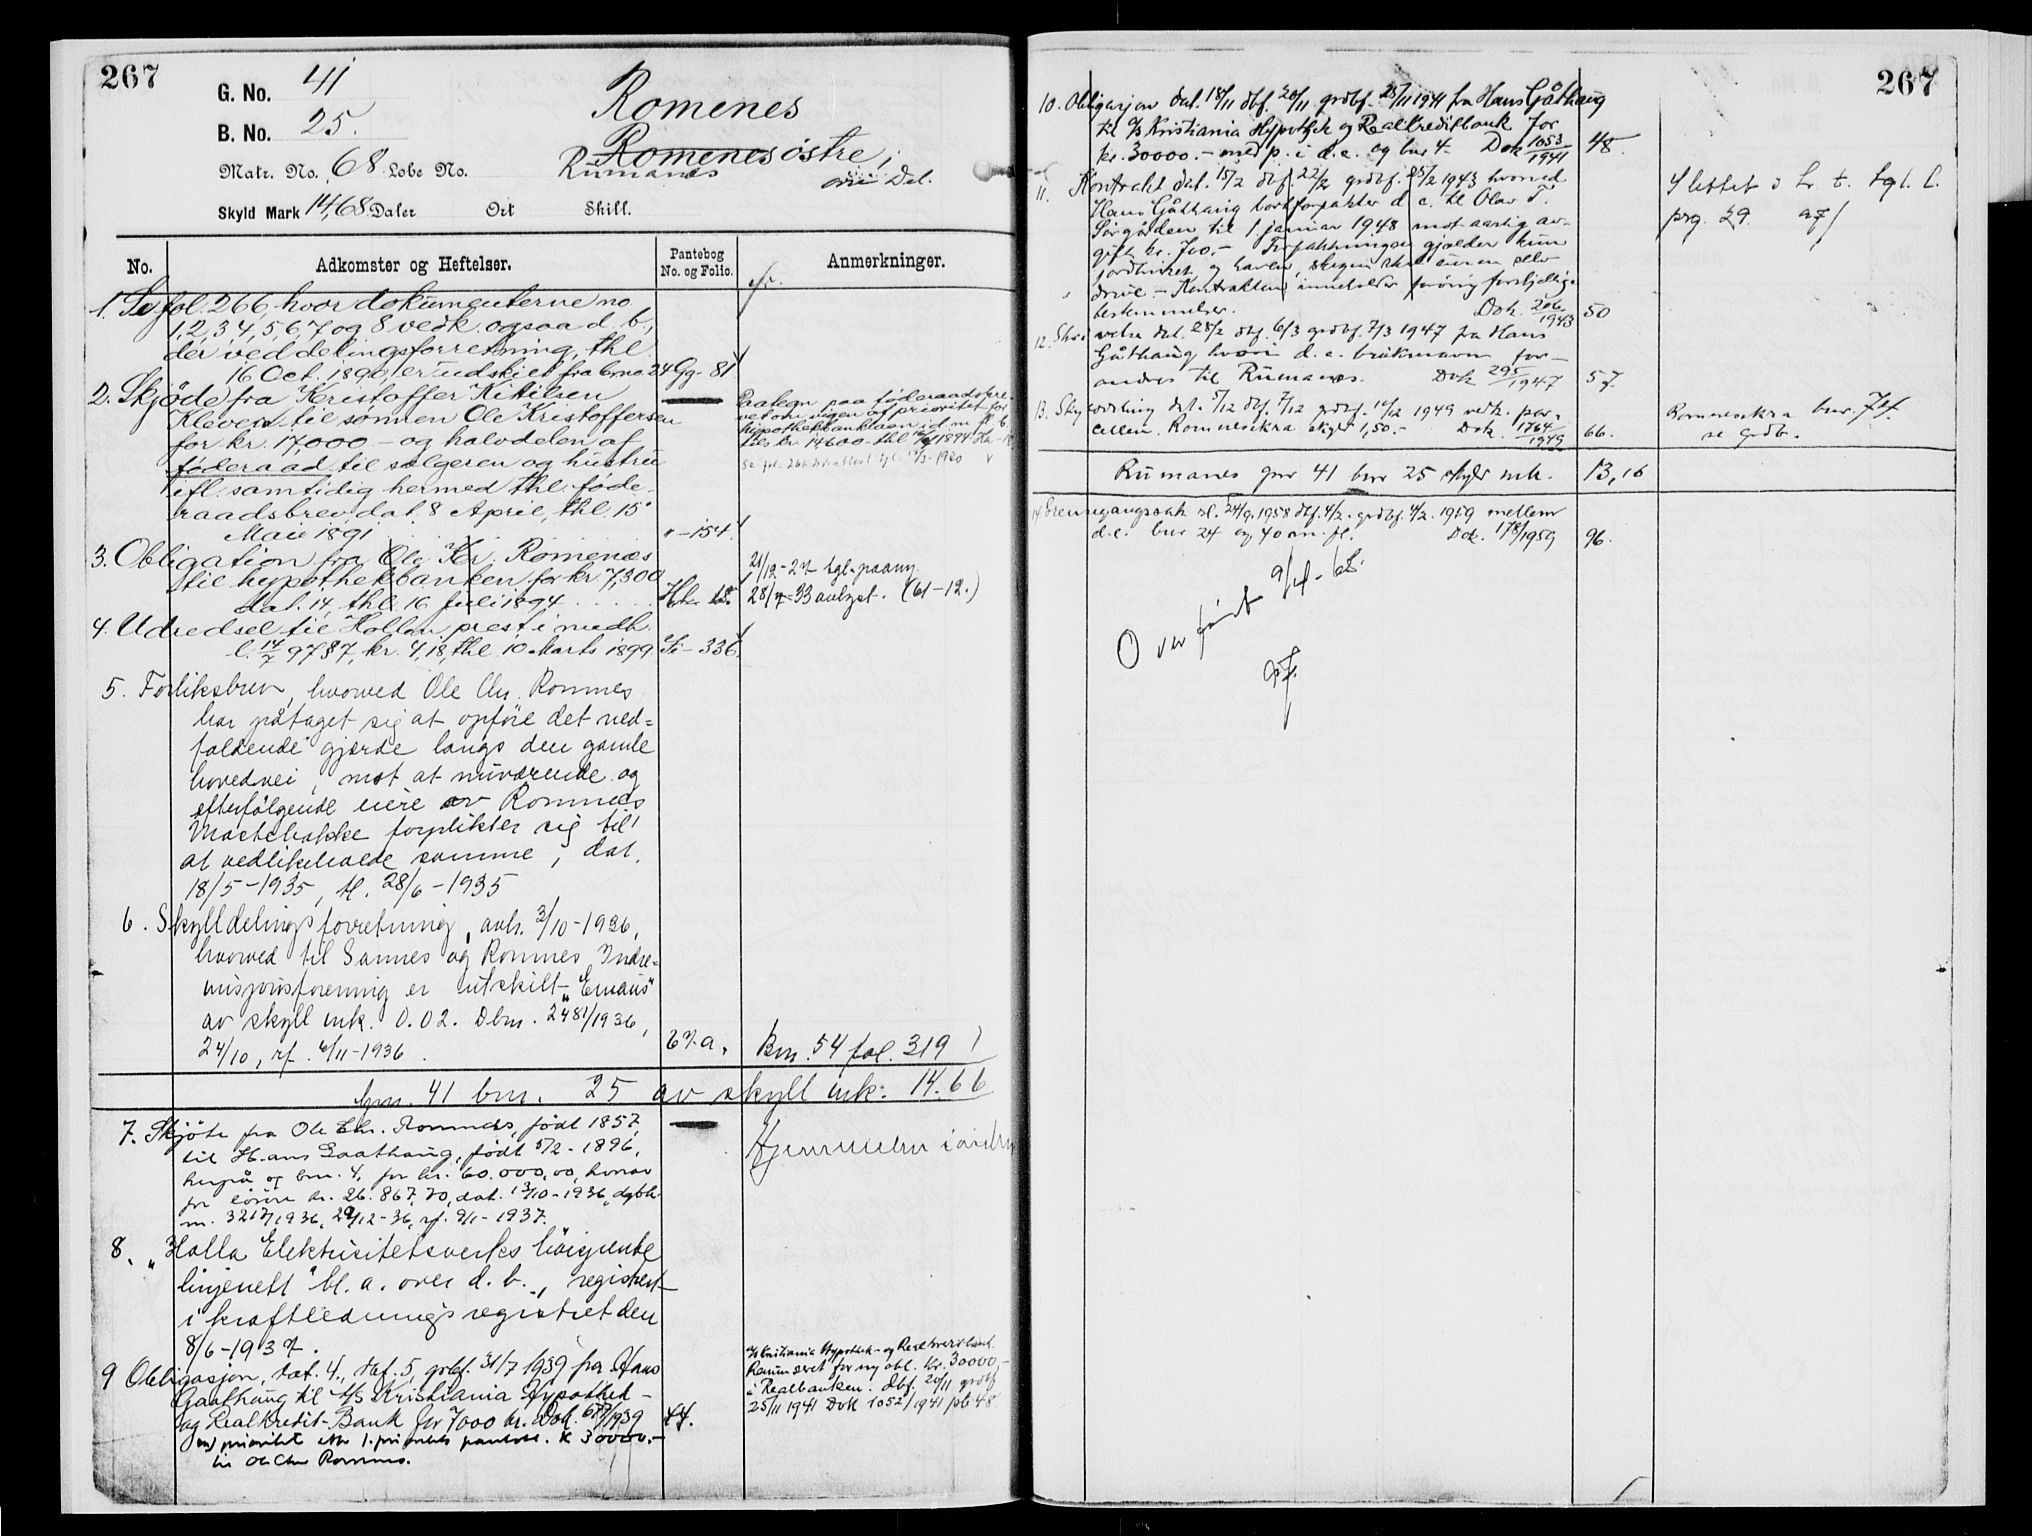 267
G. No. 41
B. No. 25.
Matr. No. 68 Løbe No.
Skyld Mark 14,68 Daler Ort Skill.
Romenes
Romenes østre,
Rumanes
øvre Del.
No.
Adkomster og Heftelser.
Pantebog No. og Folio.
Anmerkninger.
1. Se fol. 266, hvor dokumenterne no
1, 2, 3, 4, 5, 6, 7 og 8 vedk. ogsaa d. b.,
der ved delingsforretning, thl.
16 Oct. 1890, er udskilt fra brno. 24 Gg - 81
2. Skjøde fra Kristoffer Kittilsen
Kleven til sønnen Ole Kristoffersen
for kr. 17,000 - og halvdelen af
føderaad til sælgeren og hustru
ifl. samtidig hermed thl. føde-
raadsbrev dat. 8 April, thl. 15
Mai 1891
" - 154
Paategn. paa føderaadsbre-
vet om vigen af prioritet for
hypothekbanklaan
3. Obligation fra Ole Kr. Romenæs
til hypothekbanken for kr. 7,300
dat. 14, thl. 16 Juli 1894
21/12 - 27 tgl. paany
28/7 - 33 avlyst. (61 - 12.)
4. Udredsel til Hollen prest i medh.
l. 14/7 97 §7, kr. 4,18, thl. 10 Marts 1899 - 336
5. Forliksbrev, hvorved Ole Chr. Romnes
har påtaget sig at opføre det ned-
faldende gjærde langs den gamle
hovedvei, mot at nuværende og
efterfølgende eiere av Romnes
forplikter sig til
at vedlikeholde samme, dat.
18/5 - 1935, tl. 28/6 - 1935
6. Skylldelingsforretning, avh. 3/10 - 1936,
hvorved til Sannes og Romnes Indre-
misjonsforening er utskilt „Emaus"
av skyll mk. 0.02. Dbnr. 2481/1936,
24/10, rf. 6/11 - 1936.
67.a.
Bnr. 54 fol. 319
Gnr. 41 bnr. 25 av skyll mk: 14.66
7. Skjøte fra Ole Chr. Romnes, født 1857,
til Hans Gaathaug, født 5/2 - 1896,
herpå og bnr. 4, for kr. 60.000,00, hvorav
for løsøre kr. 26.867,70, dat. 13/10 - 1936, dgbk.
nr. 3217/1936, 29/12 - 36, rf. 9/1 - 1937.
Hjemmelen i orden
8. „Halla Elektrisitetsverks høigjente
linjenett" bl. a. over d. b., registrert
i kraftledningsregistret den
8/6 - 1937.
9 Obligasjon, dat. 4., dbf. 5, grdbf. 31/7 1939 fra Hans
Gaathaug til A/S Kristiania Hypothek-
og Realkredit-Bank for 7000 kr. Dok. 677/1939 44.
m/ prioritet etter 1. prioritets pantobl. k 30000.-
til Ole Chr Romnes.
A/S Kristiania Hypothek- og Realkreditbank
for ny obl. kr. 30000,-
i Realbanken. dbf. 20/11 grdbf
25/11 1941 Dok 1052/1941 pb 48
267
10. Obligasjon dat. 18/11 dbf. 20/11 grdbf. 25/11 1941 fra Hans Gåthaug
til A/S Kristiania Hypothek og Realkreditbank for
kr. 30000.- med p. i d.e. og bnr 4. Dok 1053/1941 48.
11. Kontrakt dat. 15/2 dbf. 22/2 grdbf. 25/2 1943 hvorved
Hans Gåthaug bortforpakter d. e. til Olav T.
Sørgården til 1 januar 1948 mot aarlig av-
gift kr. 700,- Forpaktningen gjelder kun
jordbruket og haven, skogen skal eieren selv
drive. - Kontrakten inneholder forøvrig forskjellige
bestemmelser. Dok. 206/1943 50
Slettet i h. t. tgl. l.
prg. 29
12. Skrivelse dat. 28/2 dbf. 6/3 grdbf. 7/3 1947 fra Hans
Gåthaug hvori d. e. bruksnavn for-
andres til Rumanes. Dok 295/1947 57.
13. Skylddeling dat. 5/12 dbf. 7/12 grdbf. 10/12 1949 vedk. par-
cellen Romnesekra skyld 1,50.- Dok. 1764/1949 66.
Romnesekra bnr. 74
se grdb.
Rumanes gnr 41 bnr 25 skyld mk. 13,16
14. Grensegangssak sl. 24/9. 1958 dbf. 4/2. grdbf. 4/2. 1959 mellem
d.e. bnr 24 og 40 m. fl. Dok. 178/1959 96.
Overført 9/4 - 68.